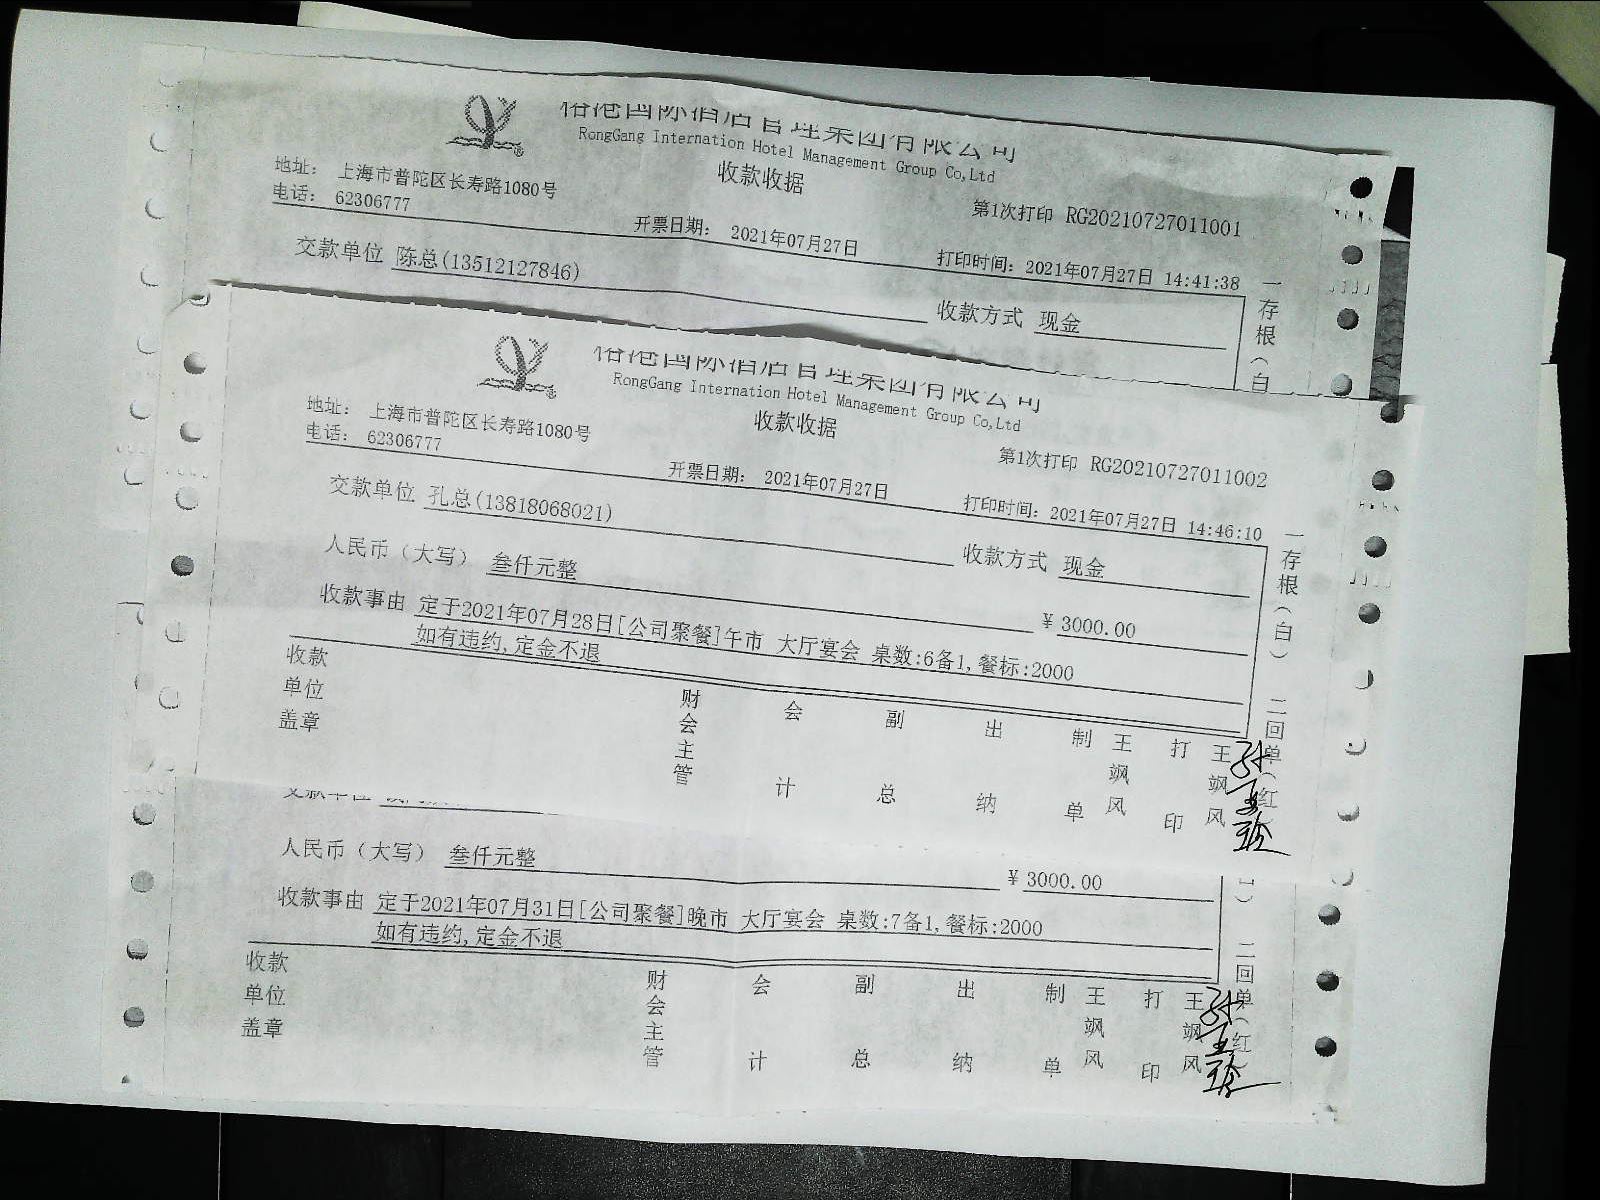 裕港国际酒店管理集团有限公司
RongGang Internation Hotel Management Group Co,Ltd
收款收据
地址： 上海市普陀区长寿路1080号
电话： 62306777
第1次打印 RG20210727011001
开票日期： 2021年07月27日
打印时间：2021年07月27日 14:41:38
交款单位 陈总(13512127846)
收款方式 现金
一存根(白
裕港国际酒店管理集团有限公司
RongGang Internation Hotel Management Group Co,Ltd
收款收据
地址： 上海市普陀区长寿路1080号
电话： 62306777
第1次打印 RG20210727011002
开票日期： 2021年07月27日
打印时间：2021年07月27日 14:46:10
交款单位 孔总(13818068021)
收款方式 现金
人民币（大写） 叁仟元整
¥ 3000.00
收款事由 定于2021年07月28日[公司聚餐]午市 大厅宴会 桌数:6备1,餐标:2000
如有违约,定金不退
收款单位盖章
财会主管
会计
副总
出纳
制单
王飒风
打印
王飒风
一存根(白) 二回单(红)
交款单位
人民币（大写） 叁仟元整
¥ 3000.00
收款事由 定于2021年07月31日[公司聚餐]晚市 大厅宴会 桌数:7备1,餐标:2000
如有违约,定金不退
收款单位盖章
财会主管
会计
副总
出纳
制单
王飒风
打印
王飒风
二回单(红)